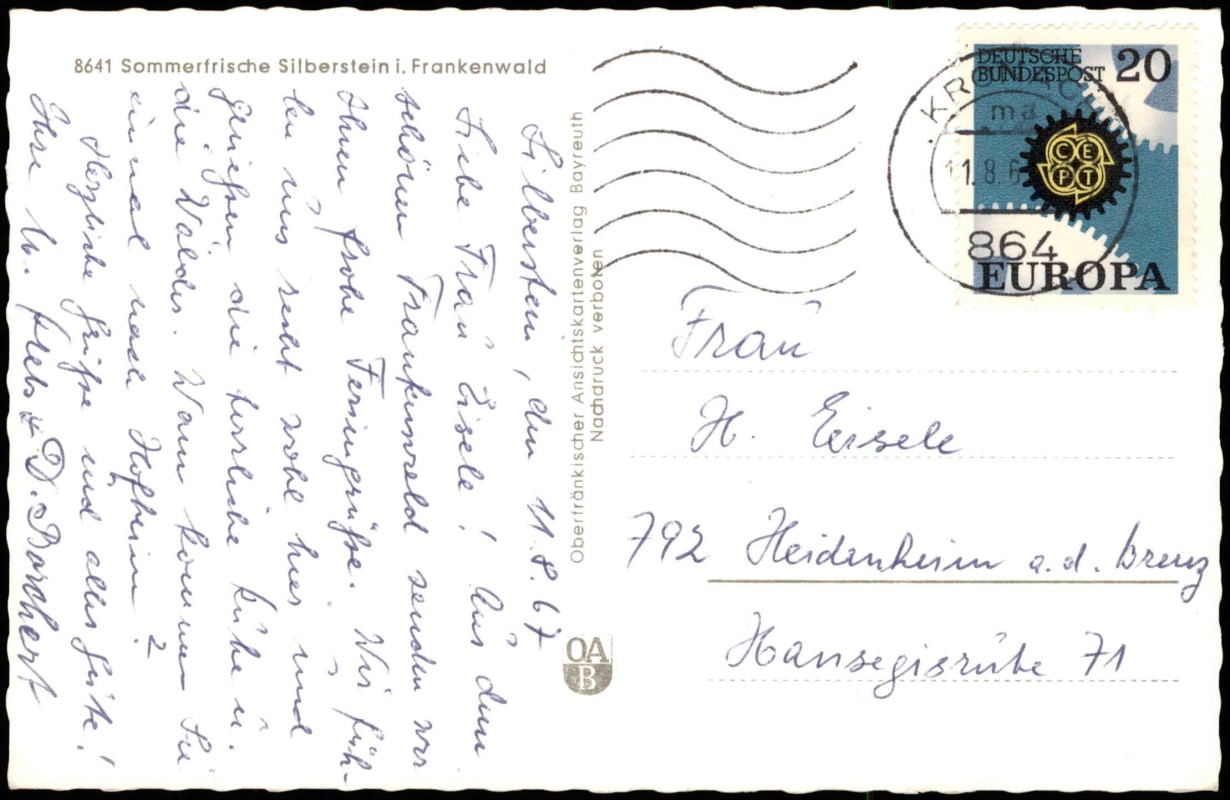 8641 Sommerfrische Silberstein i. Frankenwald
Silberstein, den 11.8.67
Liebe Frau Eisele! Aus dem
schönen Frankenwald senden wir
Ihnen frohe Feriengrüße. Wir füh-
len uns recht wohl hier und
genießen die herrliche Ruhe u.
die Wälder. Wann kommen Sie
einmal nach Hofheim?
Herzliche Grüße und alles Gute!
Ihre W. u. D. Borchert
Oberfränkischer Ansichtskartenverlag Bayreuth
Nachdruck verboten
OA
B
DEUTSCHE
BUNDESPOST 20
CEPT
EUROPA
KRONACH
11.8.6
864
Frau
H. Eisele
792 Heidenheim a.d. Brenz
Hansegisreute 71